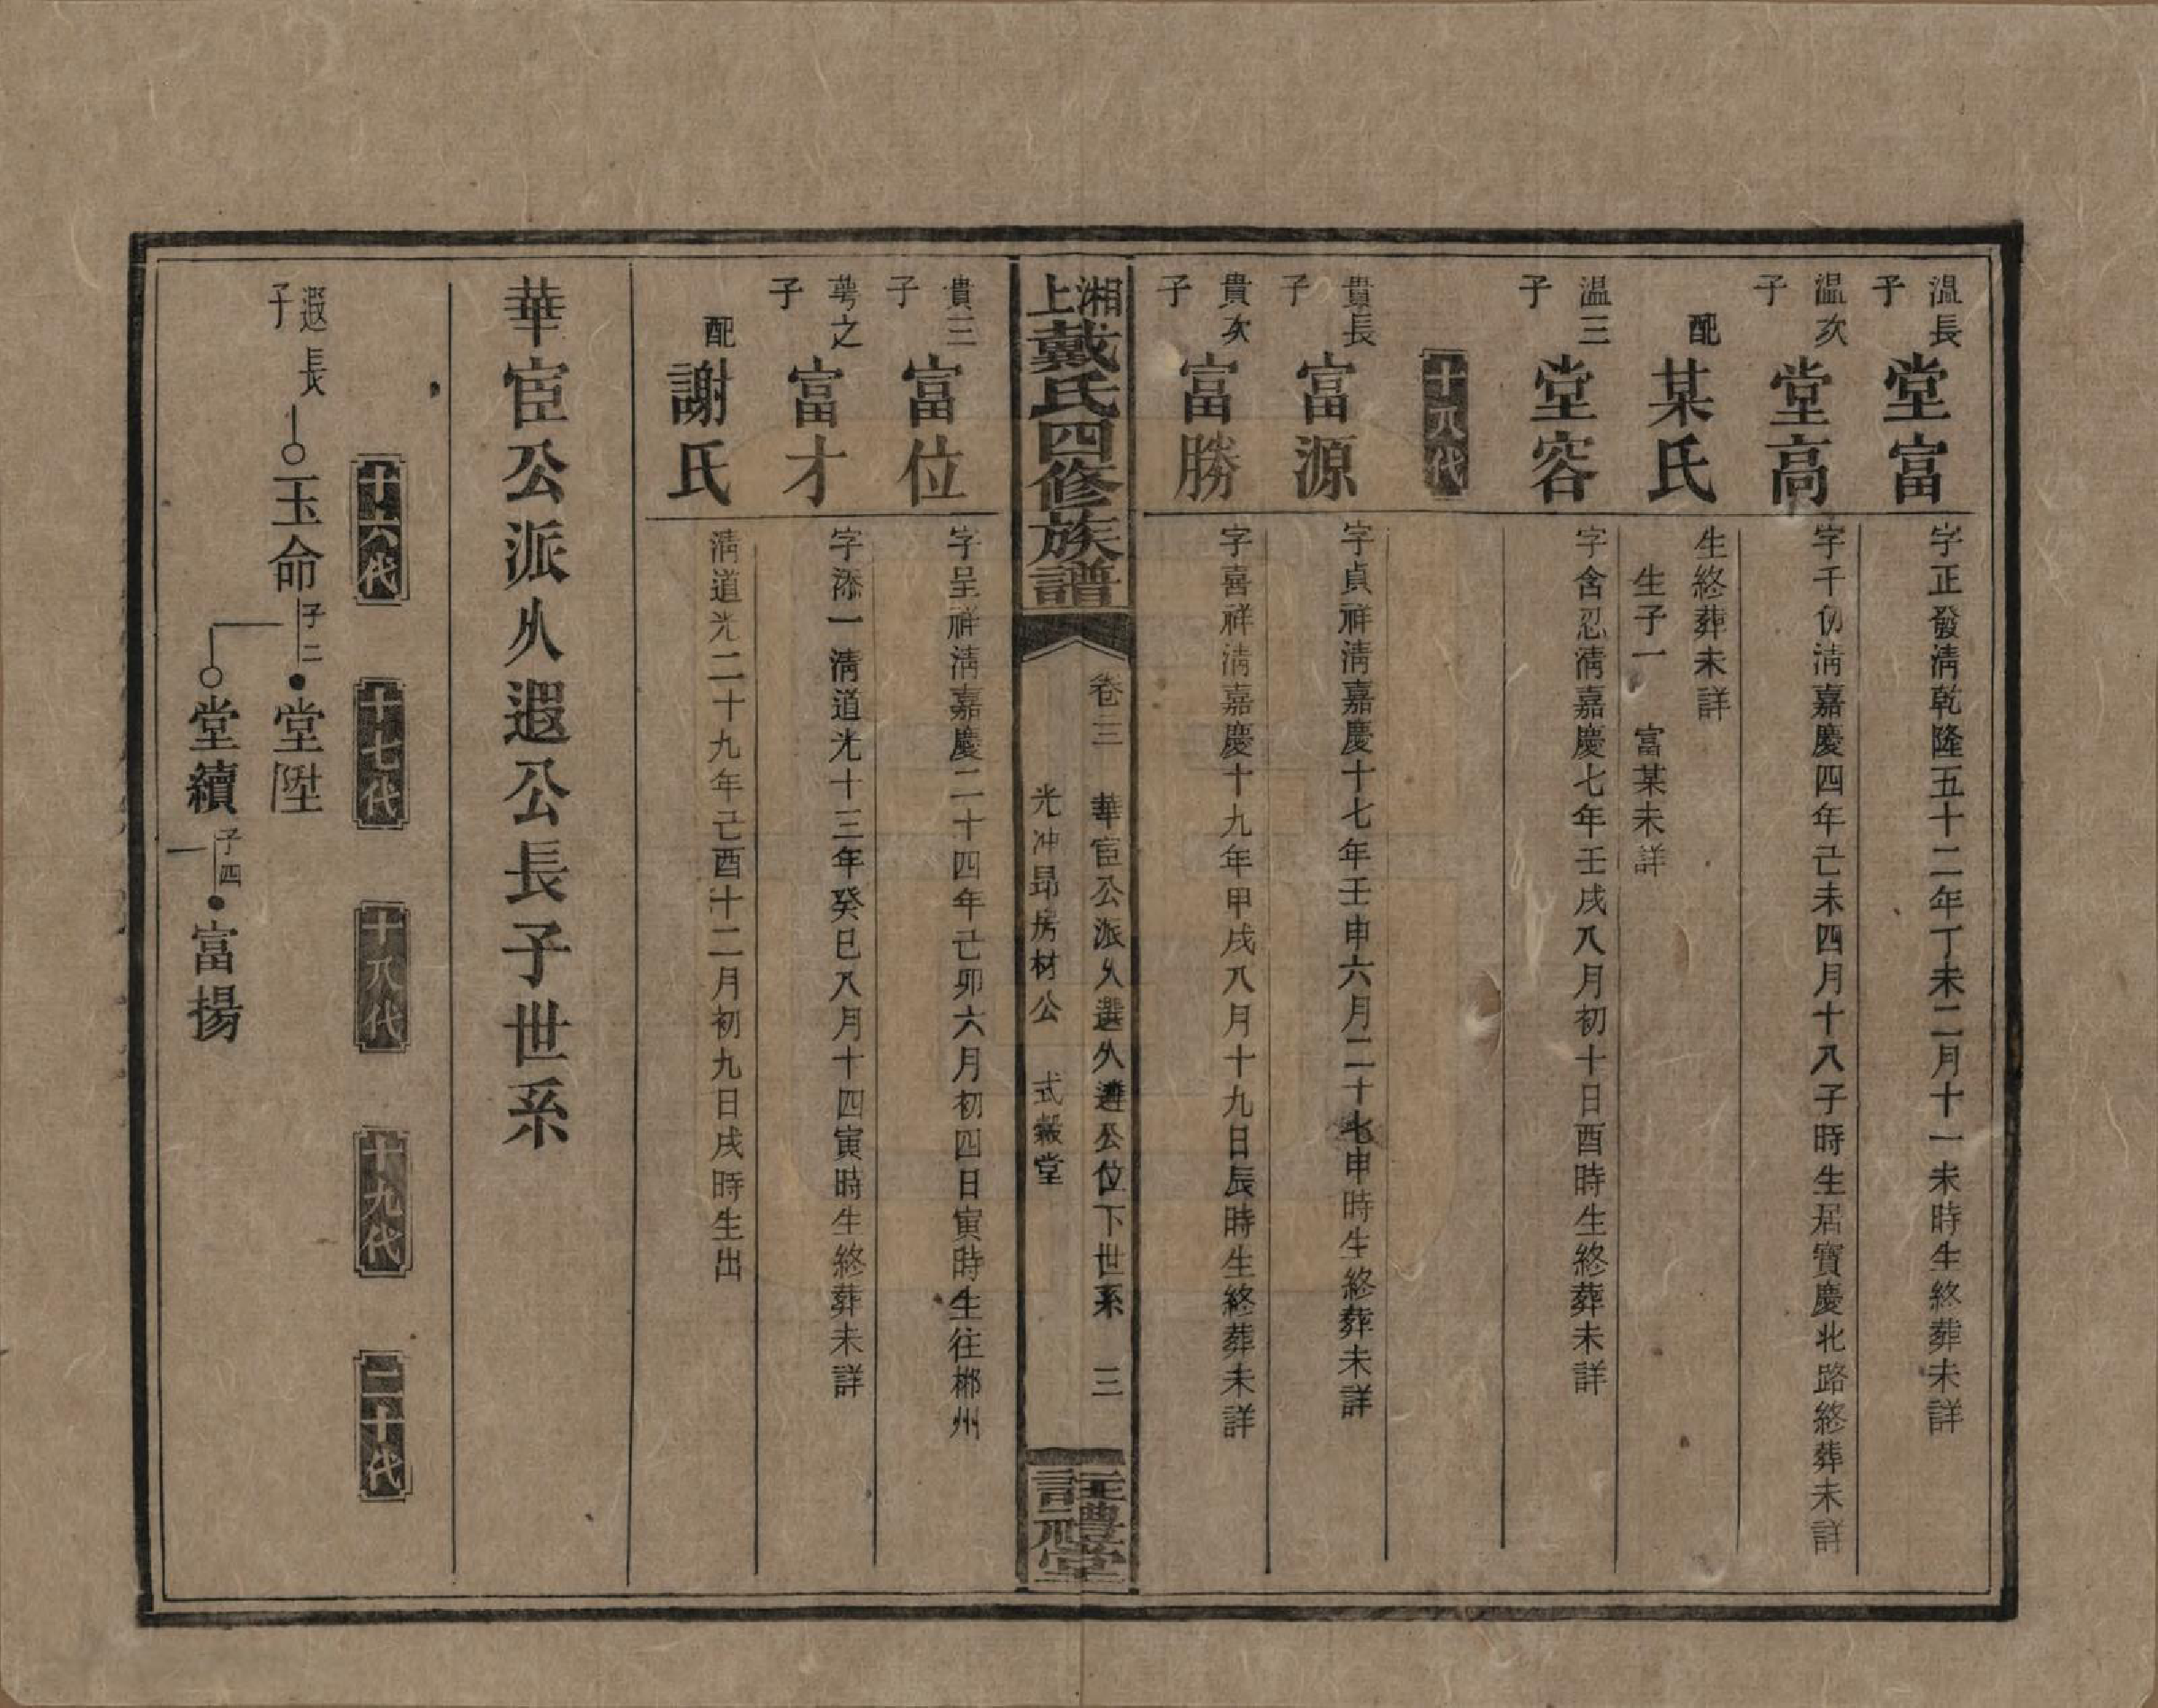 溫長子 堂富 字正發淸乾隆五十二年丁未二月十一未時生終葬未詳
溫次子 堂高 字千仞淸嘉慶四年己未四月十八子時生居寶慶北路終葬未詳
配 某氏 生終葬未詳
生子一 富某未詳
溫三子 堂容 字含忍淸嘉慶七年壬戌八月初十日酉時生終葬未詳
十八代
貴長子 富源 字貞祥淸嘉慶十七年壬申六月二十七申時生終葬未詳
貴次子 富勝 字喜祥淸嘉慶十九年甲戌八月十九日辰時生終葬未詳
湘上戴氏四修族譜
卷三 華宦公派久選久遴公位下世系 三
光冲昻房材公 式穀堂
註禮堂
貴三子 富位 字呈祥淸嘉慶二十四年己卯六月初四日寅時生往郴州
萼之子 富才 字添一淸道光十三年癸巳八月十四寅時生終葬未詳
配 謝氏 淸道光二十九年己酉十二月初九日戌時生出
華宦公派久遐公長子世系
十六代 十七代 十八代 十九代 二十代
遐長子 玉命 子二 堂陞
堂續 子四 富揚